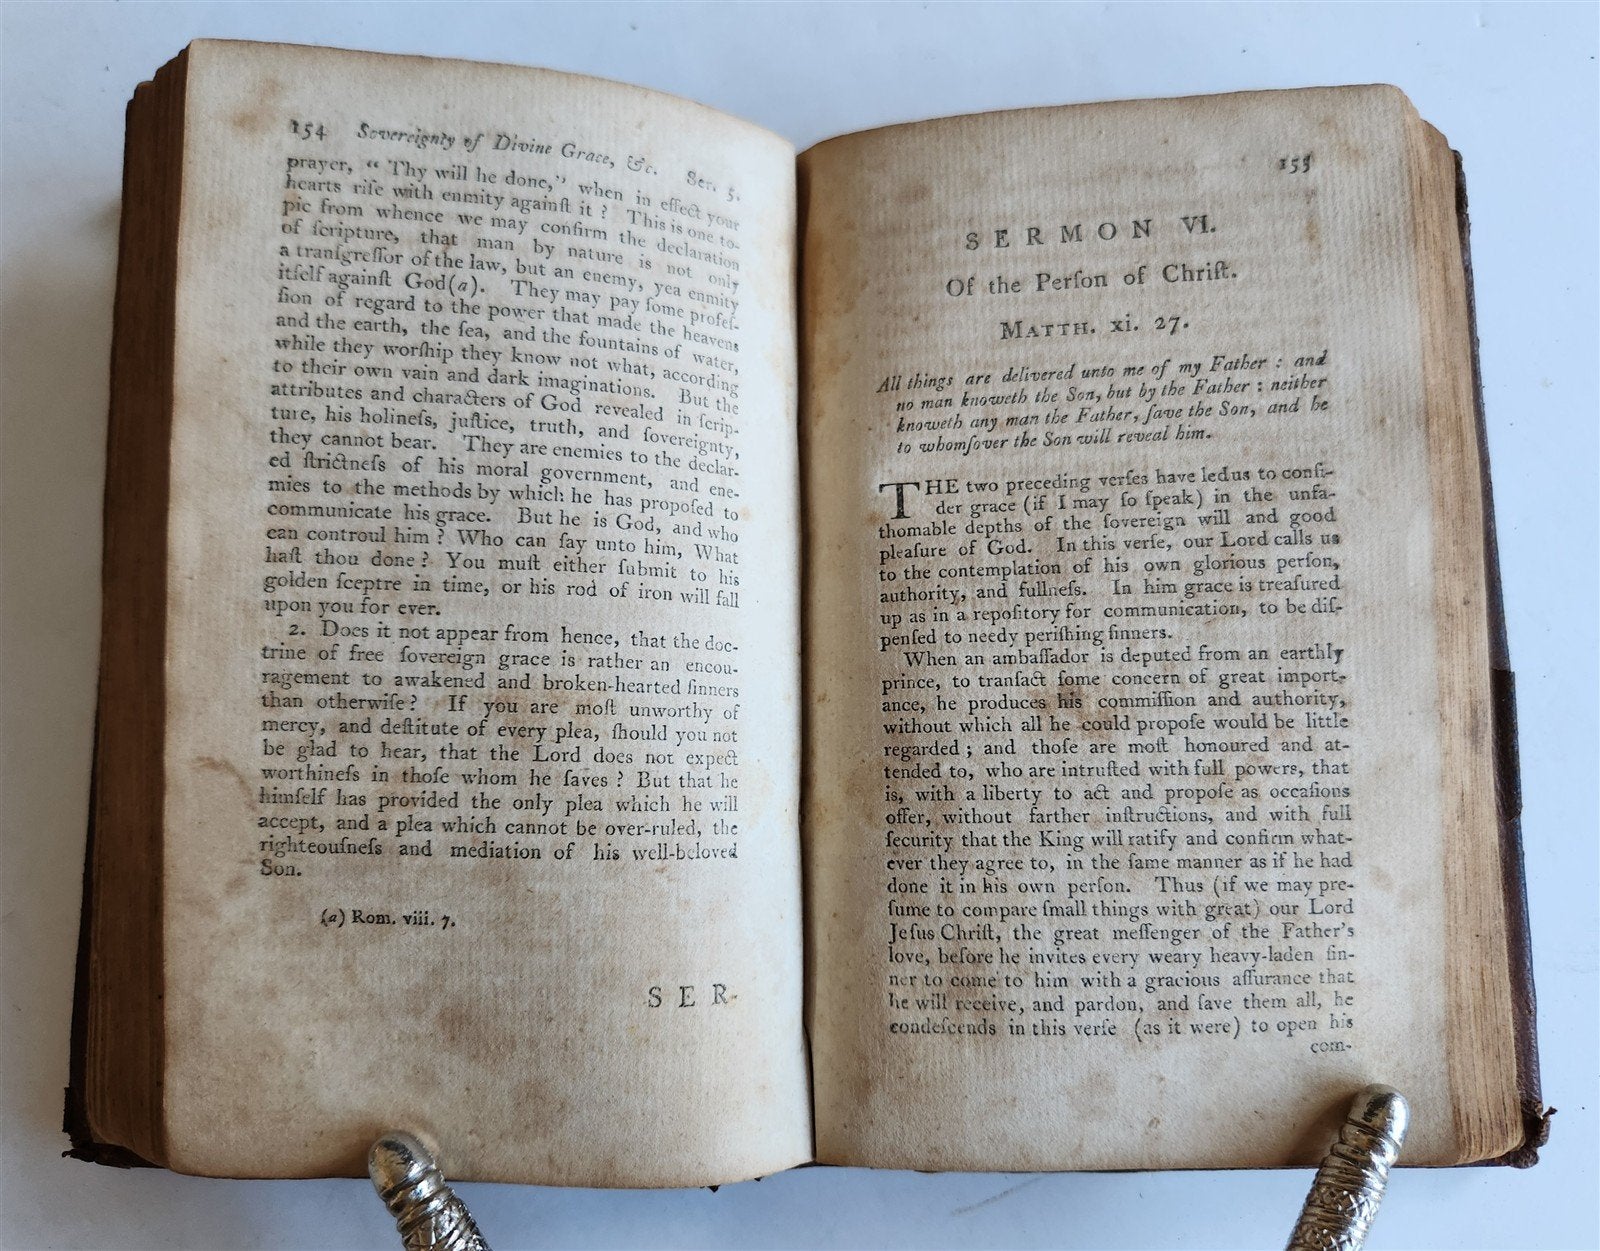 154 Sovereignty of Divine Grace, &c. Ser. 5.
prayer, “ Thy will he done,” when in effect your
hearts riſe with enmity againſt it ? This is one to-
pic from whence we may confirm the declaration
of ſcripture, that man by nature is not only
a tranſgreſſor of the law, but an enemy, yea enmity
itſelf againſt God(a). They may pay ſome profeſ-
ſion of regard to the power that made the heavens
and the earth, the ſea, and the fountains of water,
while they worſhip they know not what, according
to their own vain and dark imaginations. But the
attributes and characters of God revealed in ſcrip-
ture, his holineſs, juſtice, truth, and ſovereignty,
they cannot bear. They are enemies to the declar-
ed ſtrictneſs of his moral government, and ene-
mies to the methods by which he has propoſed to
communicate his grace. But he is God, and who
can controul him ? Who can ſay unto him, What
haſt thou done ? You muſt either ſubmit to his
golden ſceptre in time, or his rod of iron will fall
upon you for ever.
2. Does it not appear from hence, that the doc-
trine of free ſovereign grace is rather an encou-
ragement to awakened and broken-hearted ſinners
than otherwiſe ? If you are moſt unworthy of
mercy, and deſtitute of every plea, ſhould you not
be glad to hear, that the Lord does not expect
worthineſs in thoſe whom he ſaves ? But that he
himſelf has provided the only plea which he will
accept, and a plea which cannot be over-ruled, the
righteouſneſs and mediation of his well-beloved
Son.
(a) Rom. viii. 7.
SER-
155
SERMON VI.
Of the Perſon of Chriſt.
MATTH. xi. 27.
All things are delivered unto me of my Father : and
no man knoweth the Son, but by the Father : neither
knoweth any man the Father, ſave the Son, and he
to whomſover the Son will reveal him.
THE two preceding verſes have led us to conſi-
der grace (if I may ſo ſpeak) in the unfa-
thomable depths of the ſovereign will and good
pleaſure of God. In this verſe, our Lord calls us
to the contemplation of his own glorious perſon,
authority, and fullneſs. In him grace is treaſured
up as in a repoſitory for communication, to be diſ-
penſed to needy periſhing ſinners.
When an ambaſſador is deputed from an earthly
prince, to tranſact ſome concern of great import-
ance, he produces his commiſſion and authority,
without which all he could propoſe would be little
regarded ; and thoſe are moſt honoured and at-
tended to, who are intruſted with full powers, that
is, with a liberty to act and propoſe as occaſions
offer, without farther inſtructions, and with full
ſecurity that the King will ratify and confirm what-
ever they agree to, in the ſame manner as if he had
done it in his own perſon. Thus (if we may pre-
ſume to compare ſmall things with great) our Lord
Jeſus Chriſt, the great meſſenger of the Father's
love, before he invites every weary heavy-laden ſin-
ner to come to him with a gracious aſſurance that
he will receive, and pardon, and ſave them all, he
condeſcends in this verſe (as it were) to open his
com-